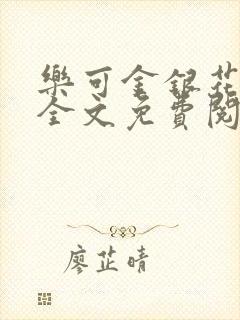 樂可金銀花
全文免費閱
廖芷晴